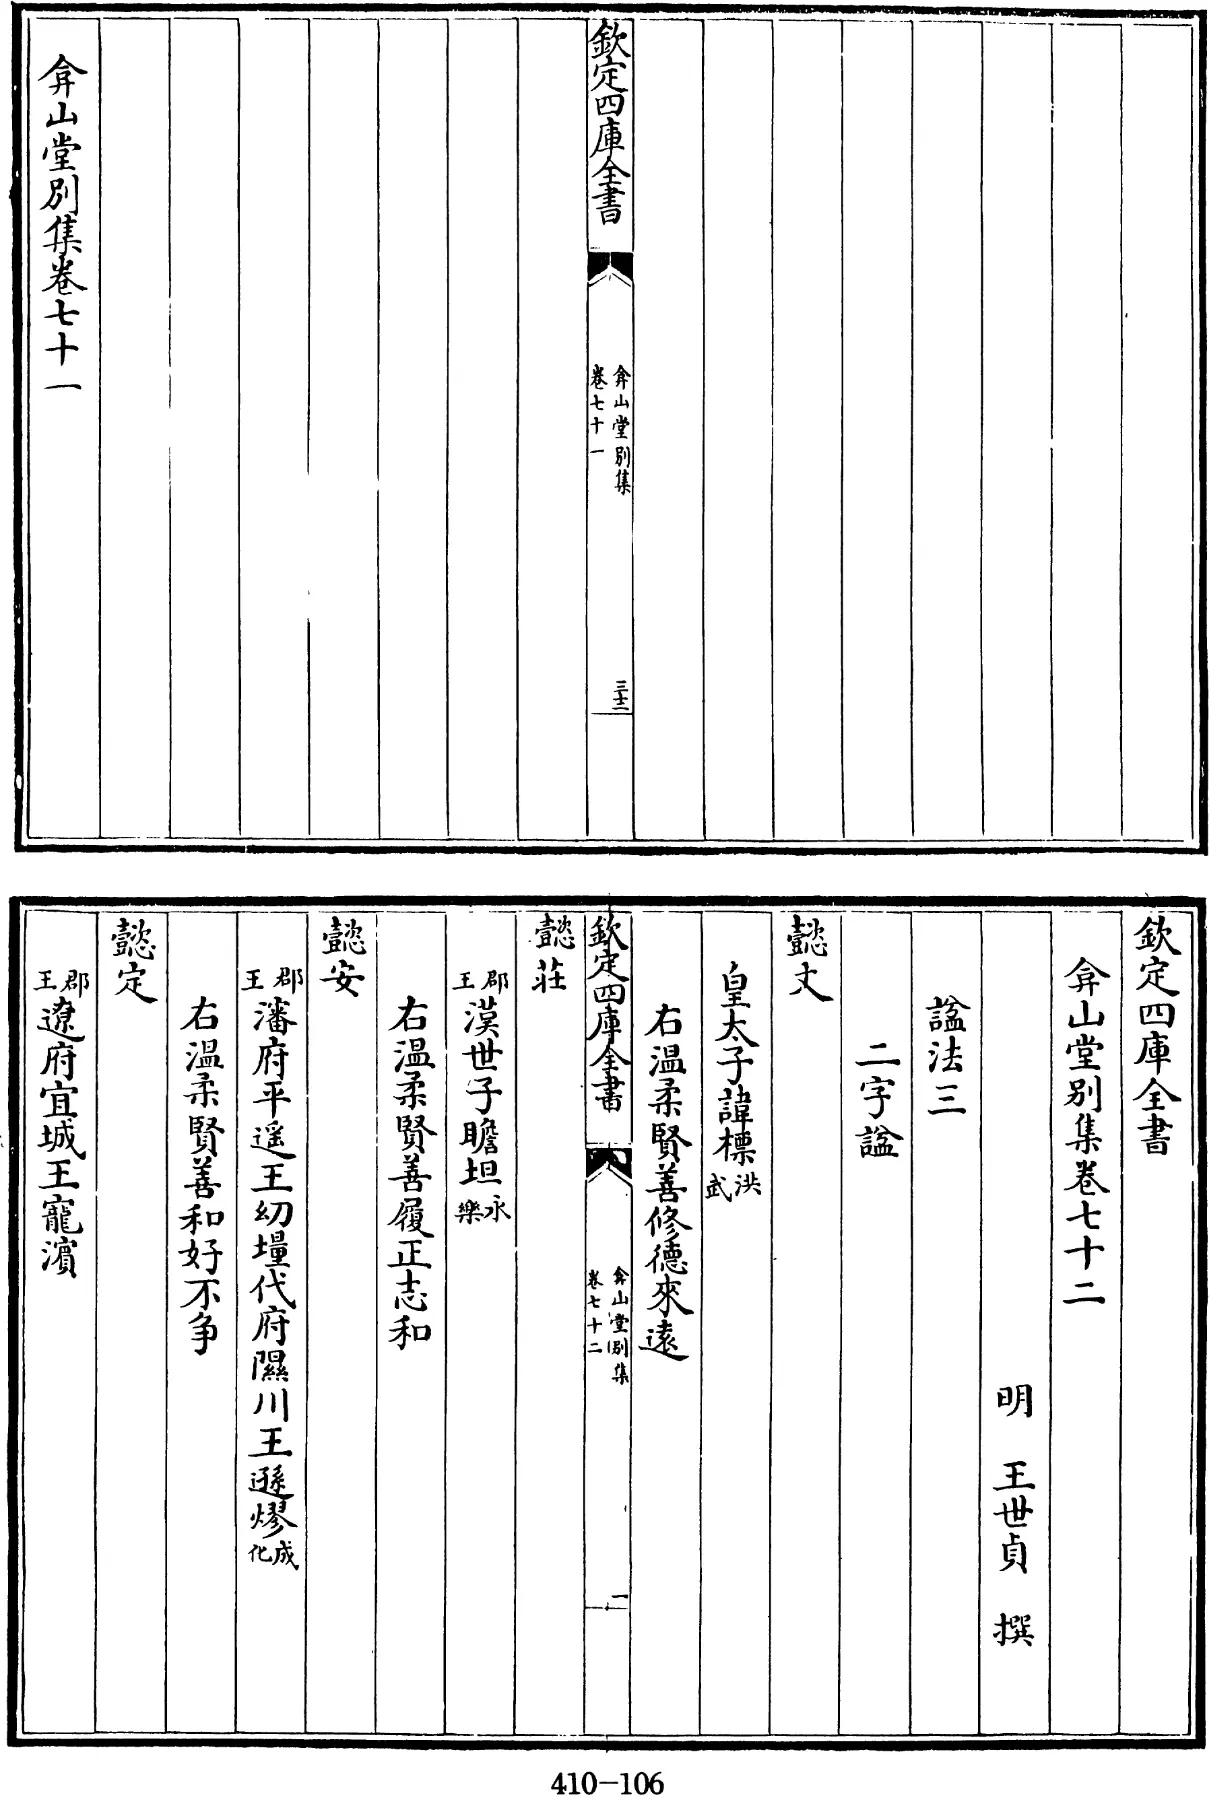 欽定四庫全書
弇山堂別集
卷七十一
三十二
弇山堂別集卷七十一
欽定四庫全書
弇山堂別集卷七十二
明 王世貞 撰
諡法三
二字諡
懿文
皇太子諱標洪武
右温柔賢善修德來遠
欽定四庫全書
弇山堂別集
卷七十二
一
懿莊
郡王漢世子瞻坦永樂
右温柔賢善履正志和
懿安
郡王瀋府平遥王幼代府隰川王遜熮成化
右温柔賢善和好不争
懿定
郡王遼府宜城王寵濱
410-106